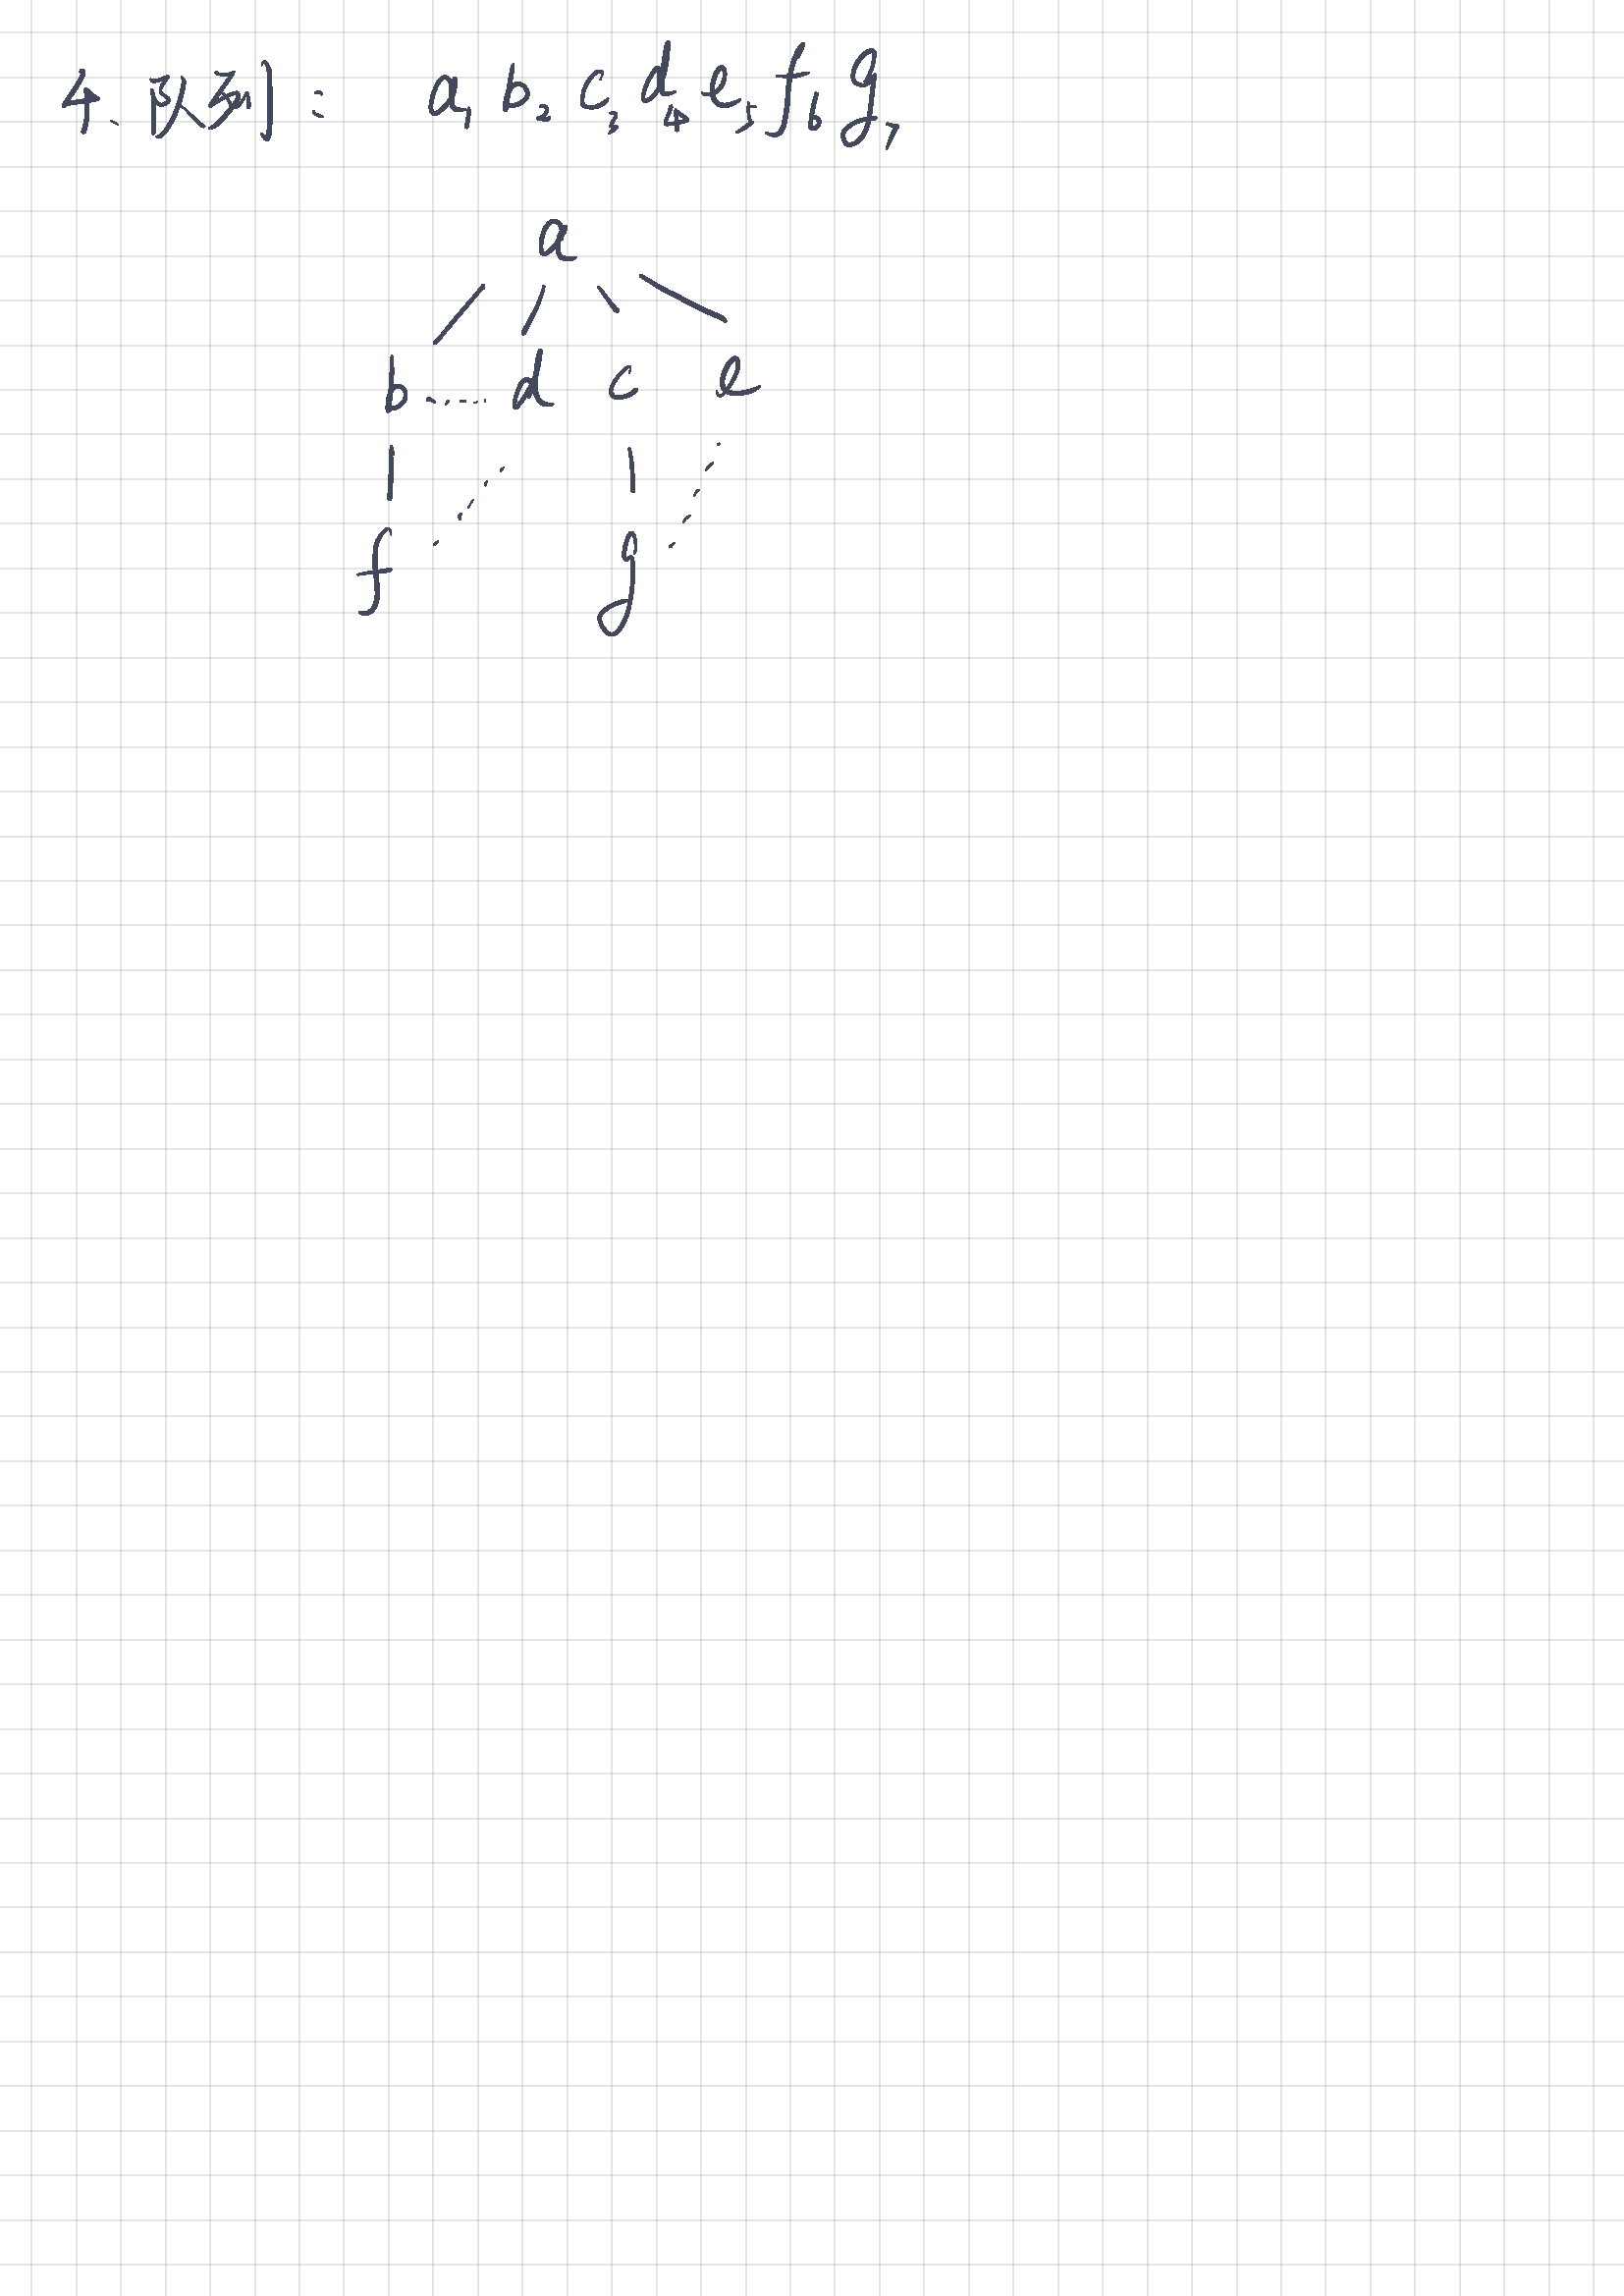 4、队列： a₁ b₂ c₃ d₄ e₅ f₆ g₇
a
b d c e
f g